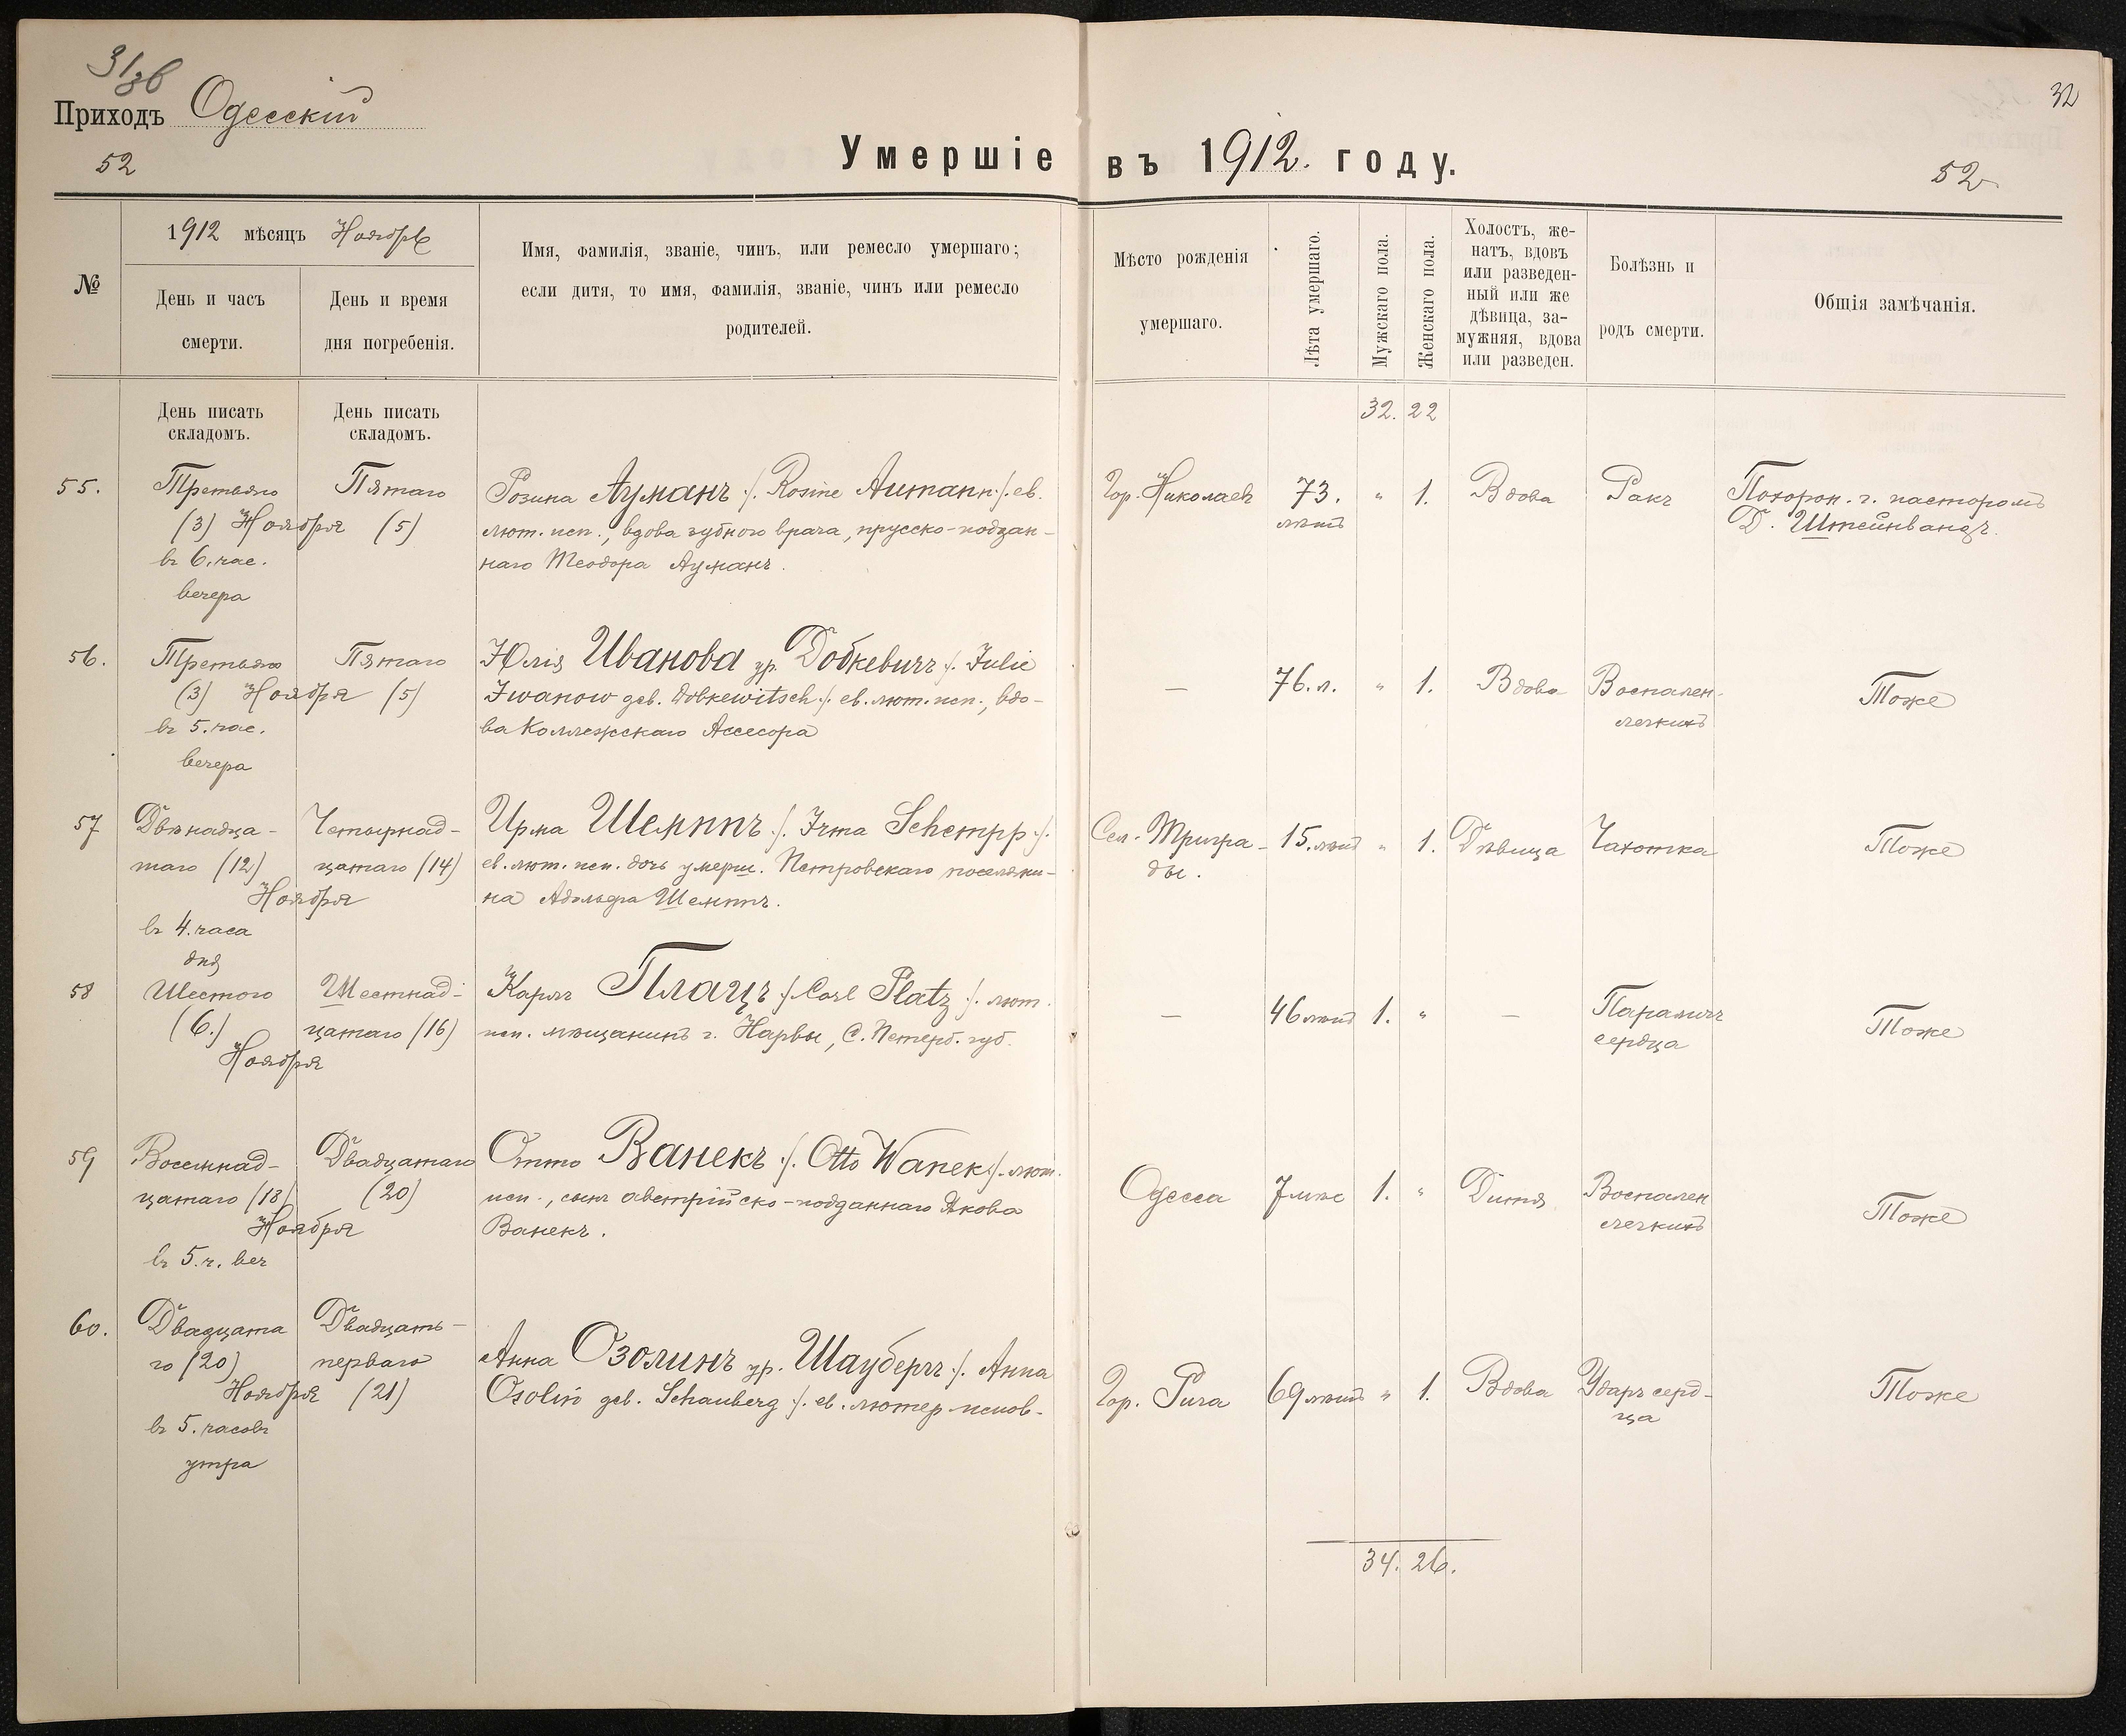 31/36
Приходъ Одесскій
32
52
Умершіе въ 1912. году.
52
№
1912 мѣсяцъ Ноябрь
День и часъ смерти.
День и время дня погребенія.
Имя, фамилія, званіе, чинъ, или ремесло умершаго;
если дитя, то имя, фамилія, званіе, чинъ или ремесло
родителей.
Мѣсто рожденія
умершаго.
Лѣта умершаго.
Мужскаго пола.
Женскаго пола.
Холостъ, же-
натъ, вдовъ
или разведен-
ный или же
дѣвица, за-
мужняя, вдова
или разведен.
Болѣзнь и
родъ смерти.
Общія замѣчанія.
День писать
складомъ.
День писать
складомъ.
32. 22
55.
Третьяго
(3) Ноября
въ 6. час.
вечера
Пятаго
(5)
Розина Ауманъ ·/. Rosine Aumann ·/. ев.
лют. исп., вдова зубного врача, прусско-поддан-
наго Теодора Ауманъ.
Гор. Николаевъ
73.
лѣтъ
" 1.
Вдова
Ракъ
Похорон. г. пасторомъ
Д. Штейнвандъ.
56.
Третьяго
(3) Ноября
въ 5. час.
вечера
Пятаго
(5)
Юлія Иванова ур. Добкевичъ ·/. Julie
Iwanow geb. Dobkewitsch ·/. ев. лют. исп., вдо-
ва Коллежскаго Ассесора
—
76. л.
" 1.
Вдова
Воспален.
легкихъ
Тоже
57
Двѣнадца-
таго (12)
Ноября
въ 4. часа
дня
Четырнад-
цатаго (14)
Ирма Шемппъ ·/. Irma Schempp ·/.
ев. лют. исп. дочь умерш. Петровскаго поселяни-
на Адольфа Шемппъ.
Сел. Тригра-
ды.
15. лѣтъ
" 1.
Дѣвица
Чахотка
Тоже
58
Шестого
(6.)
Ноября
Шестнад-
цатаго (16)
Карлъ Плацъ ·/. Carl Platz ·/. лют.
исп. мѣщанинъ г. Нарвы, С. Петерб. губ.
—
46 лѣтъ
1. "
—
Параличъ
сердца
Тоже
59
Восемнад-
цатаго (18)
Ноября
въ 5. ч. веч
Двадцатаго
(20)
Отто Ванекъ ·/. Otto Wanek ·/. лют.
исп., сынъ австрійско-подданнаго Якова
Ванекъ.
Одесса
7 мѣс
1. "
Дитя
Воспален
легкихъ
Тоже
60.
Двадцата
го (20)
Ноября
въ 5. часовъ
утра
Двадцать-
перваго
(21)
Анна Озолинъ ур. Шаубергъ ·/. Anna
Osolin geb. Schauberg ·/. ев. лютер испов.
Гор. Рига
69 лѣтъ
" 1.
Вдова
Ударъ серд-
ца
Тоже
34. 26.